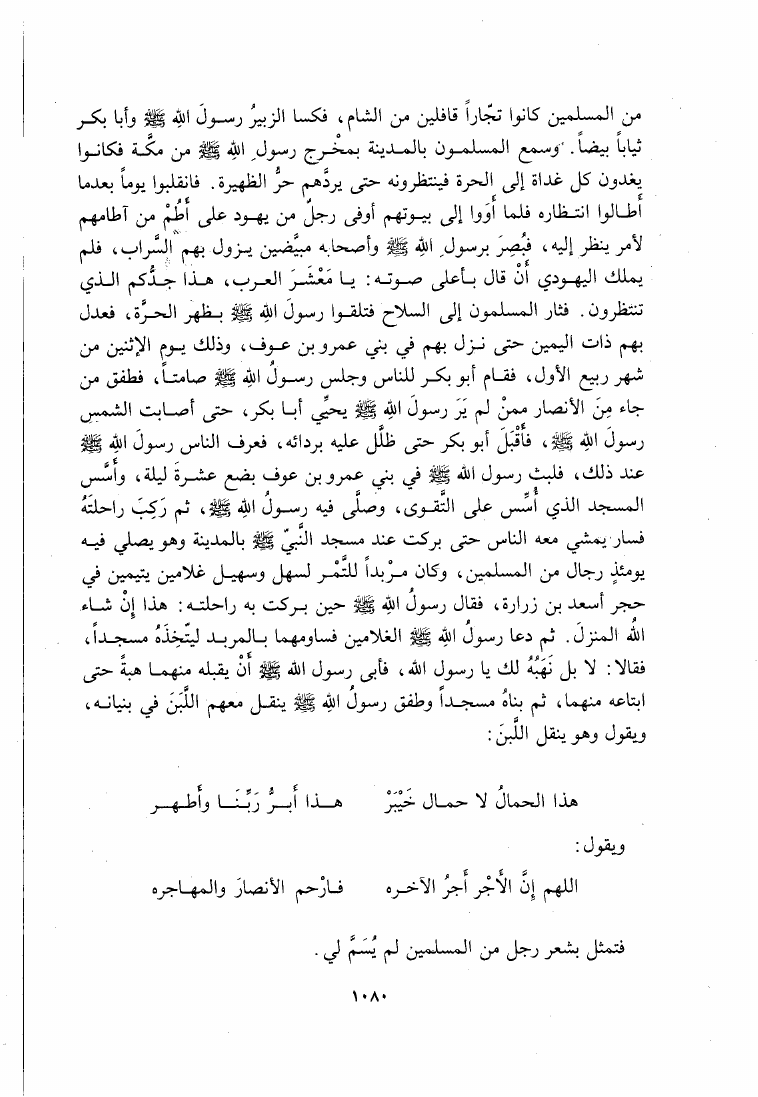 من المسلمين كانوا تجّاراً قافلين من الشام، فكسا الزبيرُ رسولَ الله ﷺ وأبا بكر
ثياباً بيضاً. وسمع المسلمون بالمدينة بمخْرج رسولِ الله ﷺ من مكَّة فكانوا
يغدون كل غداة إلى الحرة فينتظرونه حتى يردَّهم حرُّ الظهيرة. فانقلبوا يوماً بعدما
أطالوا انتظاره فلما أَوَوا إلى بيوتهم أوفى رجلٌ من يهود على أُطُمْ من آطامهم
لأمر ينظر إليه، فبُصِرَ برسولِ الله ﷺ وأصحابه مبيَّضين يزول بهم السَّراب، فلم
يملك اليهودي أَنْ قال بأعلى صوته: يا مَعْشَرَ العرب، هذا جدُّكم الذي
تنتظرون. فثار المسلمون إلى السلاح فتلقوا رسولَ الله ﷺ بظهر الحرَّة، فعدل
بهم ذات اليمين حتى نزل بهم في بني عمرو بن عوف، وذلك يوم الإثنين من
شهر ربيع الأول، فقام أبو بكر للناس وجلس رسولُ الله ﷺ صامتاً، فطفق من
جاء مِنَ الأنصار ممنْ لم يَرَ رسولَ الله ﷺ يحيِّي أبا بكر، حتى أصابت الشمس
رسولَ الله ﷺ، فأَقْبَلَ أبو بكر حتى ظلَّل عليه بردائه، فعرف الناس رسولَ الله ﷺ
عند ذلك، فلبث رسول الله ﷺ في بني عمرو بن عوف بضع عشرةَ ليلة، وأُسَّس
المسجد الذي أُسِّس على التَّقوى، وصلَّى فيه رسولُ الله ﷺ، ثم رَكِبَ راحلتَهُ
فسار يمشي معه الناس حتى بركت عند مسجد النَّبيّ ﷺ بالمدينة وهو يصلي فيه
يومئذٍ رجال من المسلمين، وكان مرْبداً للتَّمْر لسهل وسهيل غلامين يتيمين في
حجر أسعد بن زرارة، فقال رسولُ الله ﷺ حين بركت به راحلته: هذا إنْ شاء
اللهُ المنزلَ. ثم دعا رسولُ الله ﷺ الغلامين فساومهما بالمربد ليتَّخِذَهُ مسجداً،
فقالا: لا بل نَهَبُهُ لك يا رسول الله، فأبى رسول الله ﷺ أَنْ يقبله منهما هبةً حتى
ابتاعه منهما، ثم بناهُ مسجداً وطفق رسولُ الله ﷺ ينقل معهم اللَّبَنَ في بنيانه،
ويقول وهو ينقل اللَّبنَ:
هذا الحمالُ لا حمال خَيْبَرْ هذا أَبرُّ رَبِّنَا وأَطهر
ويقول:
اللهم إِنَّ الأَجْر أَجرُ الآخره فارْحم الأنصارَ والمهاجره
فتمثل بشعر رجل من المسلمين لم يُسَمَّ لي.
١٠٨٠